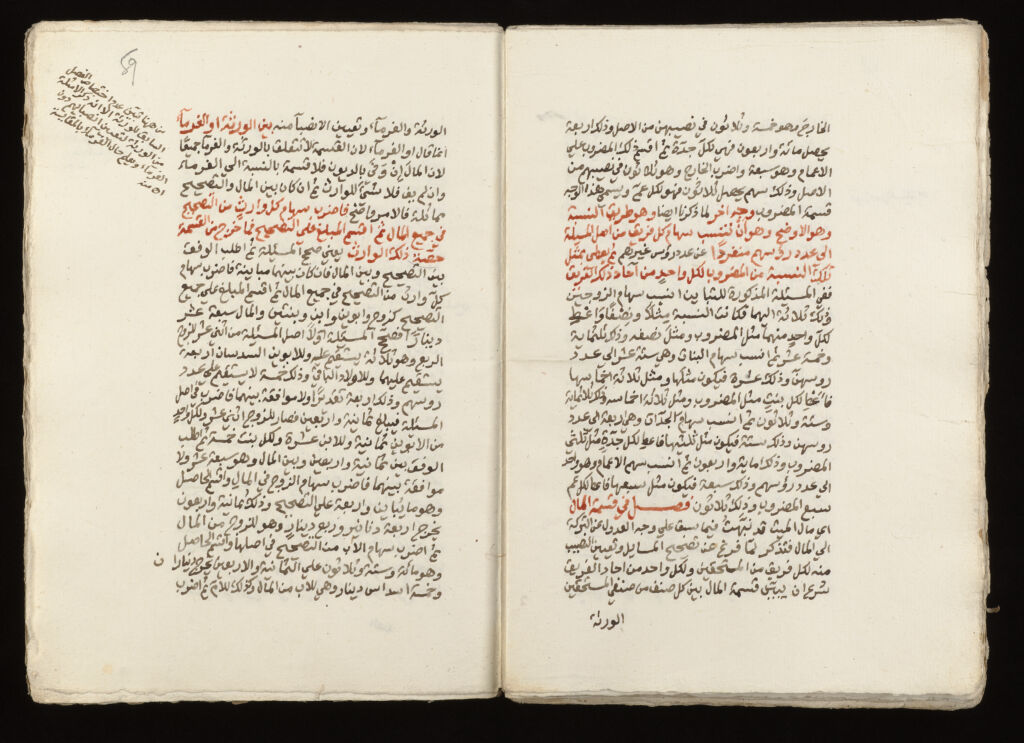 الخارج وهو خمسة وثلاثون في نصيبهن من الاصل وذلك اربعة
يحصل مائة واربعون فهي لكل جدة ثم اقسم ذلك المضروب علي
الاعمام وهو سبعة واضرب الخارج وهو ثلاثون في نصيبهم من
الاصل وذلك سهم يحصل ثلاثون فهو لكل عم ويسمي هذا الوجه
قسمة المضروب وجه اخر لما ذكرنا ايضا وهو طريق النسبة
وهو الاوضح وهو أن تنسب سهام كل فريق من اصل المسئلة
الي عدد رؤسهم منفردًا عن عدد رؤس غيرهم ثم تعطي بمثل
تلك النسبة من المضروب لكل واحدٍ من آحاد ذلك الفريق
ففي المسئلة المذكورة للتباين انسب سهام الزوجتين
وذلك ثلاثة اليهما فكانت النسبة مثلًا ونصفًا فاعطِ
لكل واحدٍ منهما مثل المضروب ومثل نصفه وذلك ثلثماية
وخمسة عشر ثم انسب سهام البنات وهي ستة عشر الي عدد
رؤسهن وذلك عشرة فيكون مثلها ومثل ثلاثة اخماسها
فاعطِ لكل بنتٍ مثل المضروب ومثل ثلاثة اخماسه وذلك ثلثماية
وستة وثلاثون ثم انسب سهام الجدات وهي اربعة الي عدد
رؤسهن وذلك ستة فيكون مثل ثلثيها فاعط لكل جدة مثل ثلثي
المضروب وذلك ماية واربعون ثم انسب سهم الاعمام وهو واحد
الي عدد رؤسهم وذلك سبعة فيكون مثل سبعها فاعط لكل عم
سبع المضروب وذلك ثلاثون فصل في قسمة المال
اي مال الميت قد نبهت فيما سبق علي وجه العدول عن التركة
الي المال فتذكر لما فرغ من تصحيح المسايل وتعيين النصيب
منه لكل فريق من المستحقين ولكل واحد من احاد الفريق
شرع ان يبين قسمة المال بين كل صنف من صنفي المستحقين
الورثة
الورثة والغرماء وتعيين الانصباء منه بين الورثة او الغرماء
انما قال او الغرماء لان القسمة لا تتعلق بالورثة والغرماء جميعًا
لان المال إن وفي بالديون فلا قسمة بالنسبة الي الغرماء
وان لم يف فلا شئ للوارث ثم ان كان بين المال والتصحيح
مماثلة فالامر واضح فاضرب سهام كل وارثٍ من التصحيح
في جميع المال ثم اقسم المبلغ علي التصحيح فما خرج من القسمة
حصة ذلك الوارث يعني صحح المسئلة ثم اطلب الوفق
بين التصحيح وبين المال فان كان بينهما مباينة فاضرب سهام
كل وارث من التصحيح في جميع المال ثم اقسم المبلغ علي جميع
التصحيح كزوج وابوين وابن وبنتين والمال سبعة عشر
دينارًا فصحح المسئلة اولًا اصل المسئلة من اثني عشر للزوج
الربع وهو ثلاثة يستقيم عليه وللابوين السدسان اربعة
يستقيم عليهما وللاولاد الباقي وذلك خمسة لا يستقيم علي عدد
رؤسهم وذلك اربعة تقديرًا ولا موافقة بينهما فاضرب في اصل
المسئلة فيبلغ ثمانية واربعين فصار للزوج اثني عشر ولكل واحدٍ
من الابوين ثمانية وللابن عشرة ولكل بنت خمسة ثم اطلب
الوفق بين ثمانية واربعين وبين المال وهو سبعة عشر ولا
موافقة بينهما فاضرب سهام الزوج في المال واقسم الحاصل
وهو مايتان واربعة علي التصحيح وذلك ثمانية واربعون
يخرج اربعة دنانير وربع دينارٍ وهو للزوج من المال
ثم اضرب سهام الاب من التصحيح في اصلها واقسم الحاصل
وهو مائة وستة وثلاثون علي الثمانية والاربعين يخرج ديناران
وخمسة اسداس دينار وهي للاب من المال وكذلك للام ثم اضرب
٤٩
من هنا تبين عدم اختصاص الفصل
السابق للورثة الا انه ذكر الامثلة
من الورثة لتعدد انصبائهم دون
الغرماء
اه منه